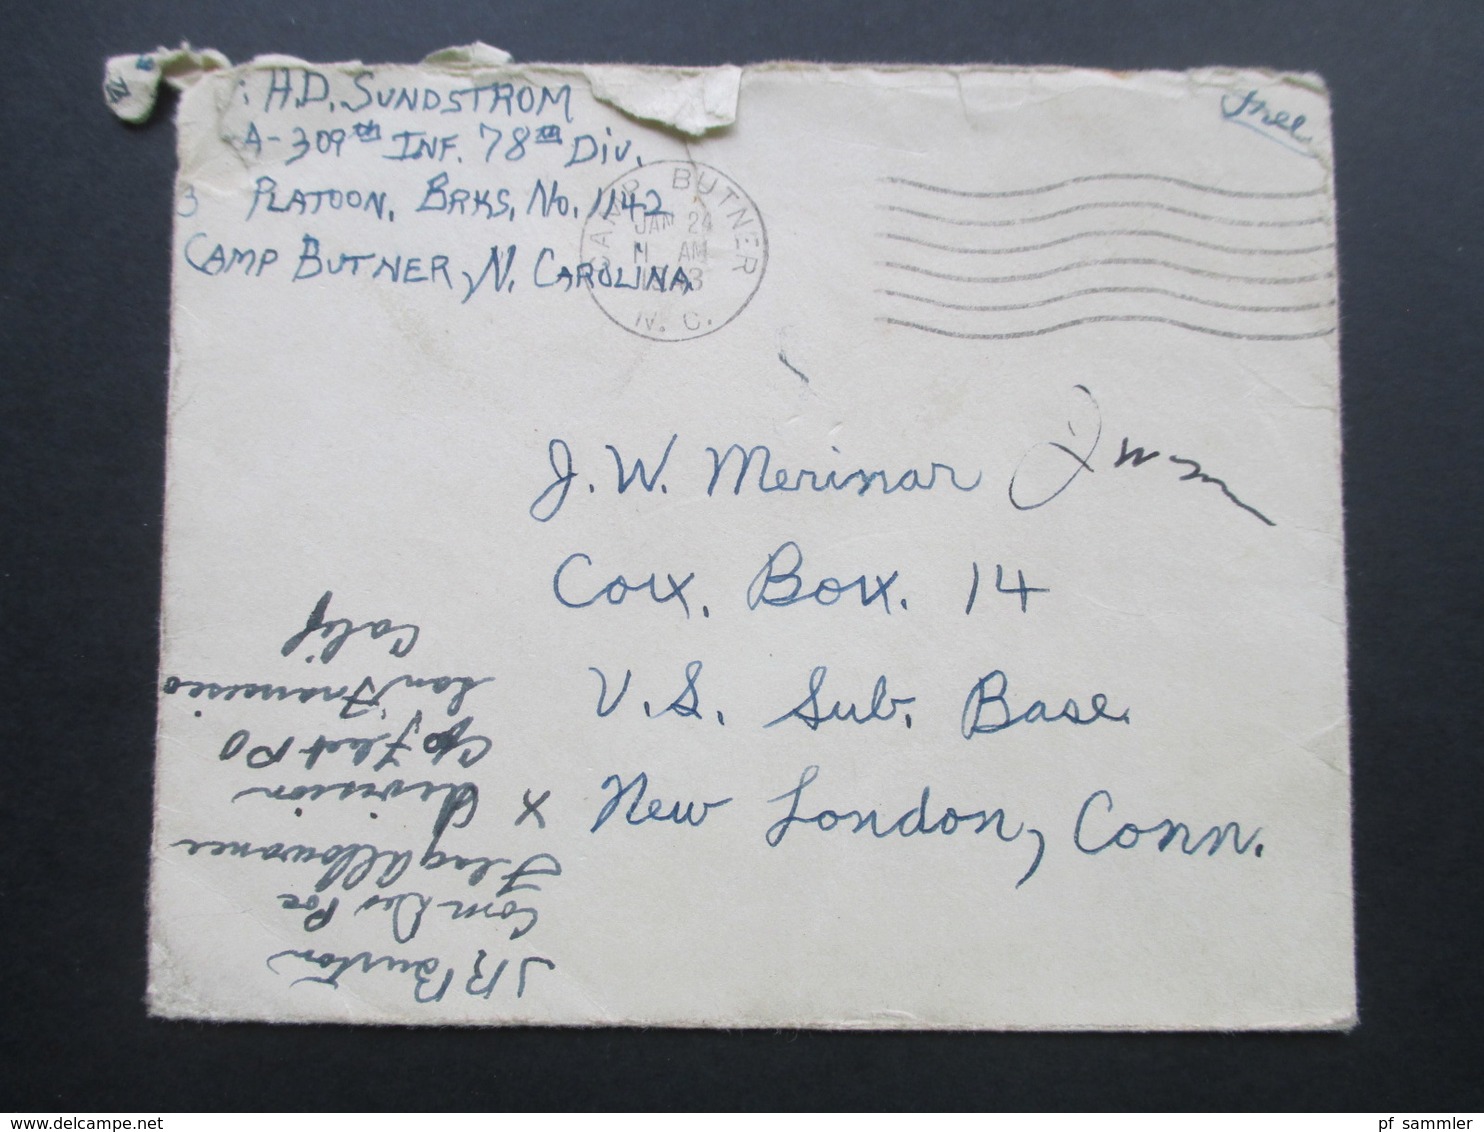 H.D. SUNDSTROM
A-309th INF. 78th Div.
3 PLATOON, BRKS, No. 1142
CAMP BUTNER, N. CAROLINA
Free
CAMP BUTNER
JAN 24
11 AM
1943
N. C.
J. W. Merinar
Cox. Box. 14
U.S. Sub. Base
New London, Conn.
J R Burton
Com Des Pac
Flag Allowance
x division
c/o Fleet PO
San Francisco
Calif
pf_sammler